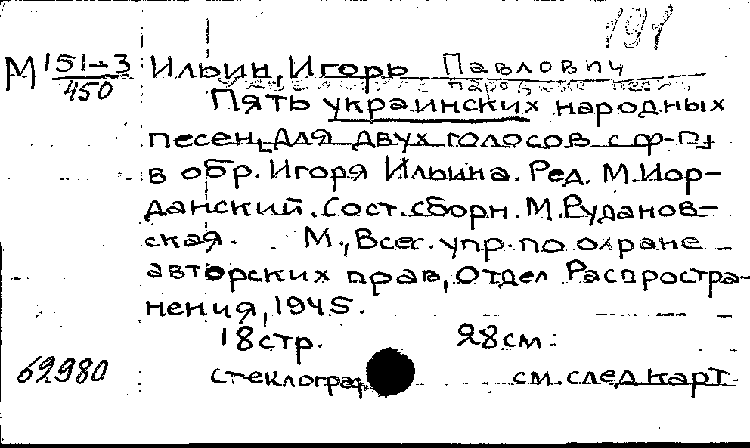 191
М 151-3/450 Ильин, Игорь Павлович
Пять украинских народных
песен, для двух голосов с ф-п,
в обр. Игоря Ильина. Ред. М. Иор-
данский. Сост. сборн. М. Рудановв-
ская. М., Всес. упр. по охране
авторских прав, Отдел Распростра-
нения, 1945.
18 стр. 28 см.
62980 стеклограф. см. след карт.